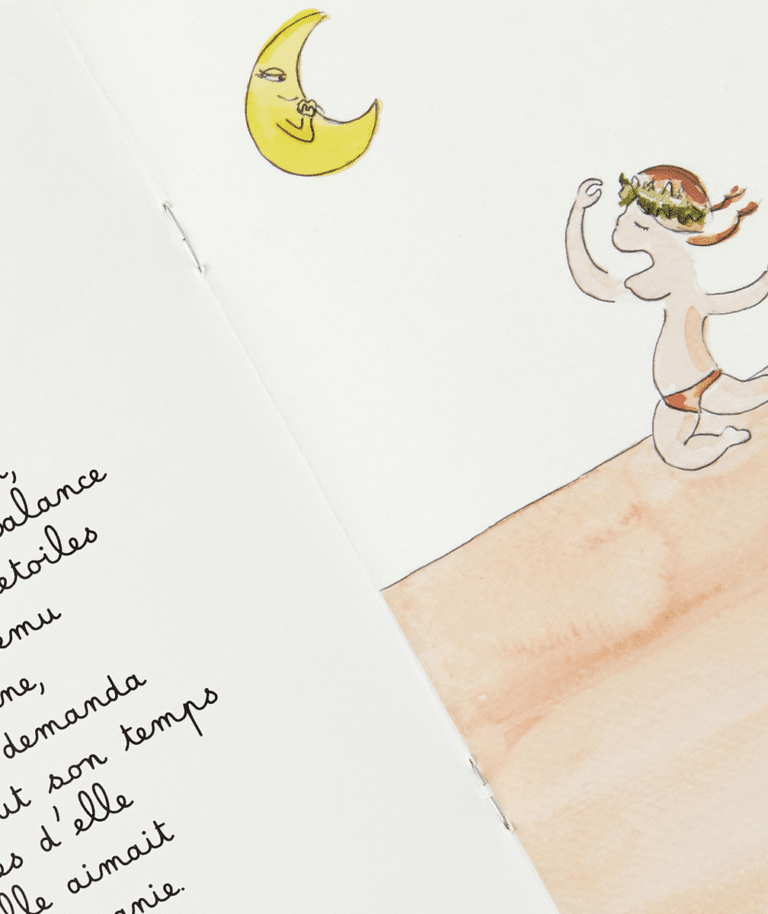 balance
etoiles
emu
ne,
demanda
ut son temps
es d'elle
lle aimait
anie.